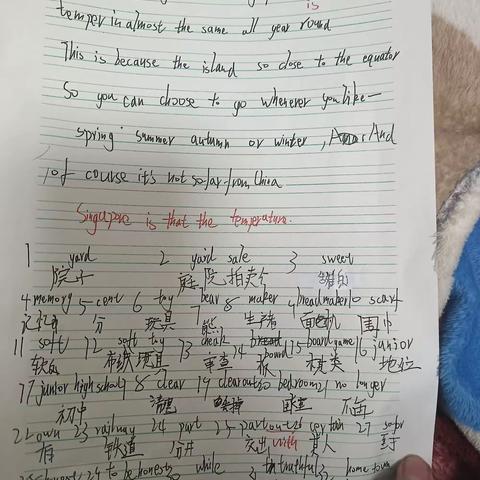 is
temper in almost the same all year round
This is because the island so close to the equator
So you can choose to go wherever you like—
spring summer autumn or winter, And
of course it's not so far from China
Singapore is that the temperature.
1 yard 2 yard sale 3 sweet
院子
4 memory 5 cent 6 toy 7 bear 8 maker 9 breadmaker 10 scarf
分 玩具 熊 生产者 围巾
11 soft 12 soft toy 13 check 14 board 15 board game 16 junior
软的 布绒玩具 审查 板 棋类 地位
17 junior high school 18 clear 19 clear out 20 bedroom 21 no longer
初中 清理 卧室 不再
22 own 23 railway 24 part 25 part with 26 certain 27 so far
有 铁道 分开
to be honest while truthful hometown